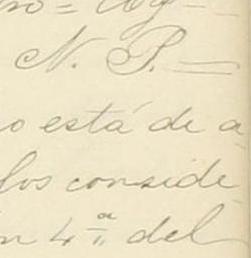 N. P. =
o está de a
los conside
n 4ª del